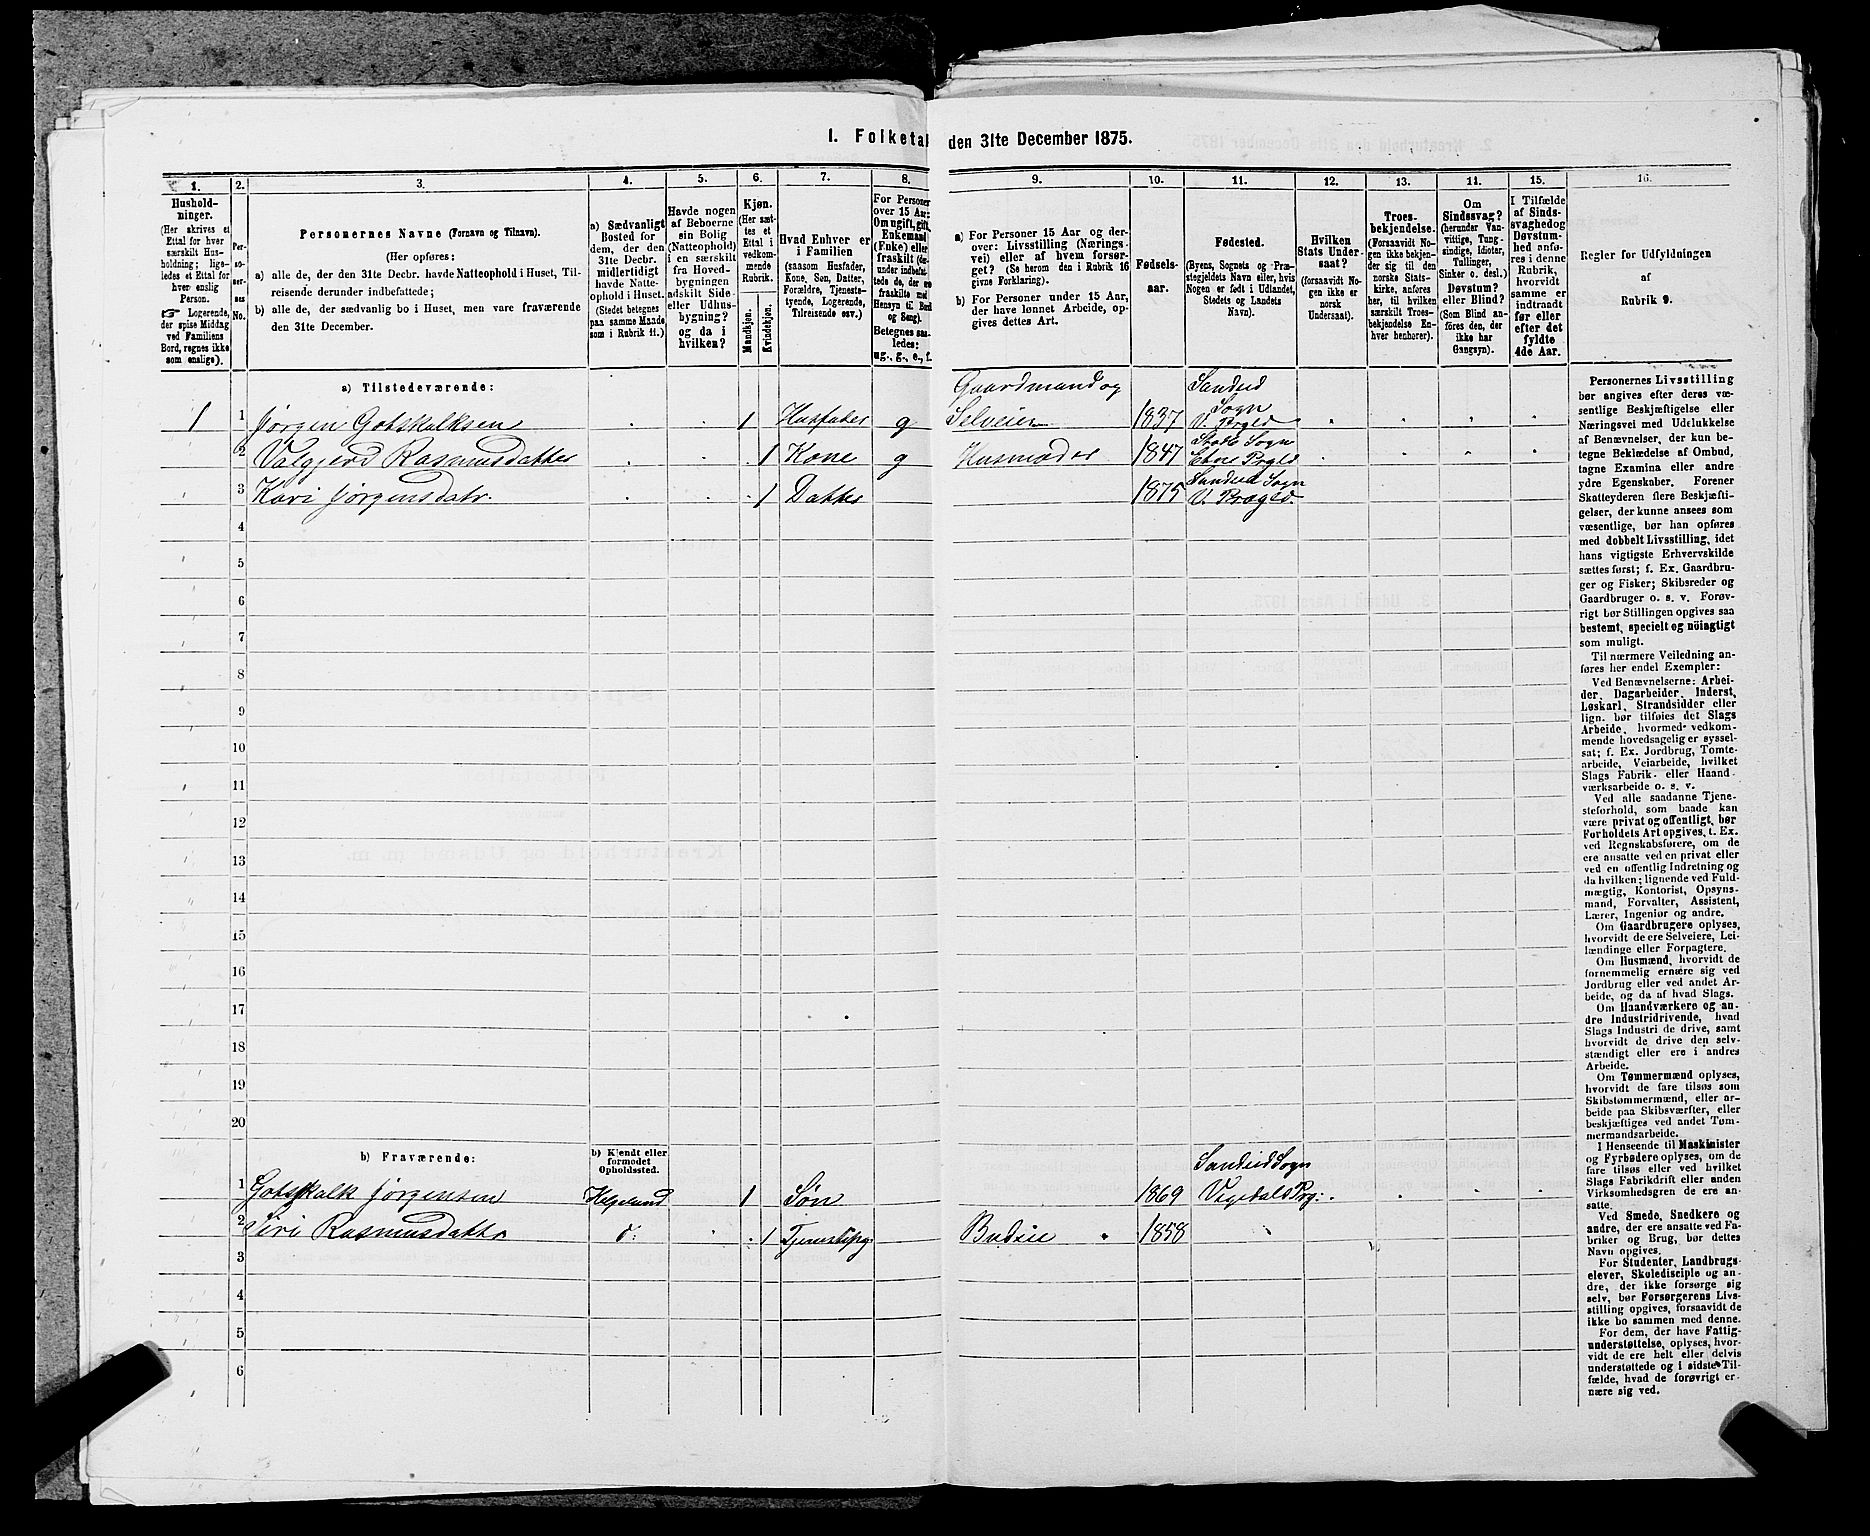 1. Folketal den 31te December 1875.
1. 2. 3. 4. 5. 6. 7. 8. 9. 10. 11. 12. 13. 14. 15. 16.
Hushold-
ninger.
(Her skrives et
Ettal for hver
særskilt Hus-
holdning; lige-
ledes et Ettal for
hver enslig
Person.
☞ Logerende,
der spise Middag
ved Familiens
Bord, regnes ikke
som enslige).
Per-
so-
ner-
nes
No.
Personernes Navne (Fornavn og Tilnavn).
(Her opføres:
a) alle de, der den 31te Decbr. havde Natteophold i Huset, Til-
reisende derunder indbefattede;
b) alle de, der sædvanlig bo i Huset, men vare fraværende
den 31te December.
a) Sædvanligt
Bosted for
dem, der den
31te Decbr.
midlertidigt
havde Natte-
ophold i Huset.
(Stedet betegnes
paa samme Maade
som i Rubrik 11.)
Havde nogen
af Beboerne
sin Bolig
(Natteophold)
i en særskilt
fra Hoved-
bygningen
adskilt Side-
eller Udhus-
bygning?
og da i
hvilken?
Kjøn.
(Her sæt-
tes et
Ettal i
vedkom-
mende
Rubrik.
Mandkjøn.
Kvindekjøn.
Hvad Enhver er
i Familien
(saasom Husfader,
Kone, Søn, Datter,
Forældre, Tjeneste-
tyende, Logerende,
Tilreisende osv.)
For Personer
over 15 Aar:
Om ugift, gift,
Enkemand
(Enke) eller
fraskilt (der-
under indbefat-
tede de, der ere
fraskilte med
Hensyn til Bord
og Seng).
Betegnes saa-
ledes:
ug., g., e., f.
a) For Personer 15 Aar og der-
over: Livsstilling (Nærings-
vei) eller af hvem forsør-
get? (Se herom den i Rubrik 16
givne Forklaring).
b) For Personer under 15 Aar,
der have lønnet Arbeide, op-
gives dettes Art.
Fødsels-
aar.
Fødested.
(Byens, Sognets og Præ-
stegjeldets Navn eller, hvis
Nogen er født i Udlandet,
Stedets og Landets
Navn).
Hvilken
Stats Under-
saat?
(forsaavidt No-
gen ikke er
norsk
Undersaat).
Troes-
bekjendelse.
(Forsaavidt No-
gen ikke bekjen-
der sig til den
norske Stats-
kirke, anføres
her, til hvilken
særskilt Troes-
bekjendelse En-
hver henhører).
Om
Sindssvag?
(herunder Van-
vittige, Tung-
sindige, Idioter,
Tullinger,
Sinker o. desl.)
Døvstum?
eller Blind?
(Som Blind an-
føres den, der
ikke har
Gangsyn).
I Tilfælde
af Sinds-
svaghed og
Døvstum-
hed anfø-
res i denne
Rubrik,
hvorvidt
samme er
indtraadt
før eller
efter det
fyldte
4de Aar.
Regler for Udfyldningen
af
Rubrik 9.
a) Tilstedeværende:
Gaardmand og Sandeid Sogn
1 1 Jørgen Gotskalksen 1 Husfader g Selveier 1837 V. Prgld
2 Valgjerd Rasmusdatter 1 Kone g Husmoder 1847 Stole Sogn Etne Prgld
3 Kari Jørgensdatr. 1 Datter 1875 Sandeid Sogn V. Prægld.
4
5
6
7
8
9
10
11
12
13
14
15
16
17
18
19
20
b) Fraværende:
b) Kjendt eller
formodet
Opholdssted.
Sandeid Sogn
1 Gotskalk Jørgensen Helgeland 1 Søn 1869 Vigedals Prg:
2 Siri Rasmusdattr d: 1 Budeie 1858
3
4
5
6
Personernes Livsstilling
bør angives efter deres væ-
sentlige Beskjæftigelse eller
Næringsvei med Udelukkelse
af Benævnelser, der kun be-
tegne Beklædelse af Ombud,
tagne Examina eller andre
ydre Egenskaber. Forener
Skatteyderen flere Beskjæfti-
gelser, der kunne ansees som
væsentlige, bør han opføres
med dobbelt Livsstilling, idet
hans vigtigste Erhvervskilde
sættes først; f. Ex. Gaardbru-
ger og Fisker; Skibsreder og
Gaardbruger o. s. v. Forøv-
rigt bør Stillingen opgives saa
bestemt, specielt og nöiagtigt
som muligt.
Til nærmere Veiledning an-
føres her endel Exempler:
Ved Benævnelserne: Arbei-
der, Dagarbeider, Inderst,
Løskarl, Strandsidder eller
lign. bør tilføies det Slags
Arbeide, hvormed vedkom-
mende hovedsagelig er syssel-
sat; f. Ex. Jordbrug, Tomte-
arbeide, Veiarbeide, hvilket
Slags Fabrik- eller Haand-
værksarbeide o. s. v.
Ved alle saadanne Tjene-
steforhold, som baade kan
være privat og offentligt, bør
Forholdets Art opgives, t. Ex.
ved Regnskabsførere, om de
ere ansatte ved en privat eller
ved en offentlig Indretning og
da hvilken; lignende ved Fuld-
mægtig, Kontorist, Opsyns-
mand, Forvalter, Assistent,
Lærer, Ingeniør og andre.
Om Gaardbrugere oplyses,
hvorvidt de ere Selveiere, Lei-
lændinge eller Forpagtere.
Om Husmænd, hvorvidt de
fornemmelig ernære sig ved
Jordbrug eller ved andet Ar-
beide, og da af hvad Slags.
Om Haandværkere og an-
dre Industridrivende, hvad
Slags Industri de drive, samt
hvorvidt de drive den selv-
stændigt eller ere i andres
Arbeide.
Om Tømmermænd oplyses,
hvorvidt de fare tilsøs som
Skibstømmermænd, eller ar-
beide paa Skibsværfter, eller
beskjæftiges ved andet Tøm-
mermandsarbeide.
I Henseende til Maskinister
og Fyrbødere oplyses, om de
fare tilsøs eller ved hvilket
Slags Fabrikdrift eller anden
Virksomhedsgren de ere an-
satte.
Ved Smede, Snedkere og
andre, der ere ansatte ved Fa-
briker og Brug, bør dettes
Navn opgives.
For Studenter, Landbrugs-
elever, Skoledisciple og an-
dre, der ikke forsørge sig
selv, bør Forsørgerens Livs-
stilling opgives, forsaavidt de
ikke bo sammen med denne.
For dem, der have Fattig-
understøttelse, oplyses, hvor-
vidt de ere helt eller delvis
understøttede og i sidste Til-
fælde, hvad de forøvrigt er-
nære sig ved.